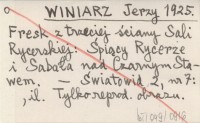 WINIARZ Jerzy 1925.
Fresk z trzeciej ściany Sali
Rycerskiej: Śpiący Rycerze
i Sabała nad Czarnym Sta-
wem. — Światowid 2, nr 7:
, il. Tylko reprod. obrazu.